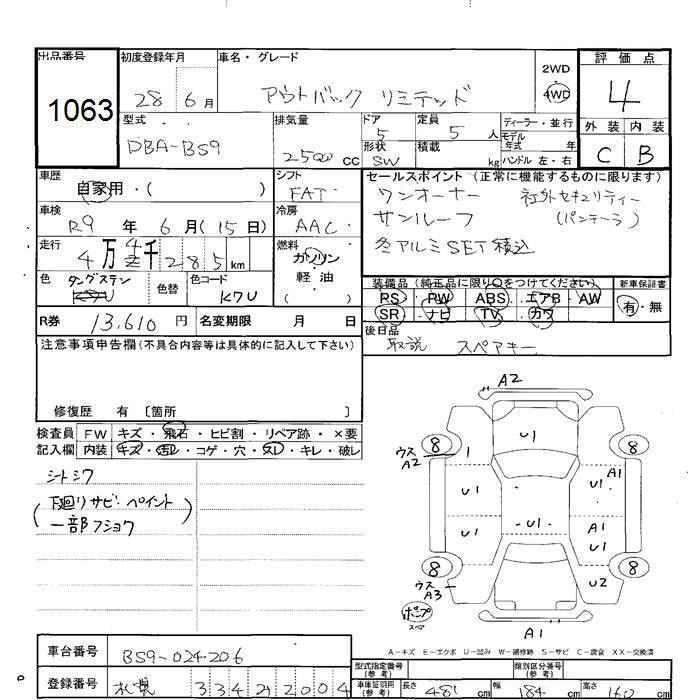 出品番号 初度登録年月 車名・グレード 評価点
1063
28 6月 アウトバック リミテッド 2WD 4WD 4
型式 排気量 ドア 定員 ディーラー・並行 外装 内装
DBA-BS9 2500 CC 5 5 人 モデル年式 年
形状 積載 C B
SW kg ハンドル 左・右
車歴 シフト セールスポイント(正常に機能するものに限ります)
自家用・( ) FAT ワンオーナー 社外セキュリティー
車検 冷房 サンルーフ (パンテーラ)
R9 年 6 月(15 日) AAC
走行 燃料 冬アルミSET積込
4万4千285km ガソリン
軽油
色 タングステン 色替 色コード 装備品(純正品に限り○をつけてください) 新車保証書
K7U ( ) RS・PW・ABS・エアB・AW 有・無
R券 13,610 円 名変期限 月 日 SR・ナビ・TV・カワ・
注意事項申告欄(不具合内容等は具体的に記入して下さい) 後日品
取説 スペアキー
修復歴 有〔箇所 〕
検査員 FW キズ・飛石・ヒビ割・リペア跡・×要
記入欄 内装 キズ・汚レ・コゲ・穴・スレ・キレ・破レ
シートシワ
(下廻りサビ・ペイント
一部フショク)
A2
8 U1 8
ウスA2 1 1
U1 U1 A1
U1 U1 A1 U1
8 8
ウスA3 U2
ポンプ
スペア
A1
A−キズ E−エクボ U−凹み W−補修跡 S−サビ C−腐食 XX−交換済
車台番号 BS9-024206 型式指定番号(参考) 類別区分番号(参考)
登録番号 札幌 334 2004 車庫証明用(参考) 長さ 481 cm 幅 184 cm 高さ 160 cm